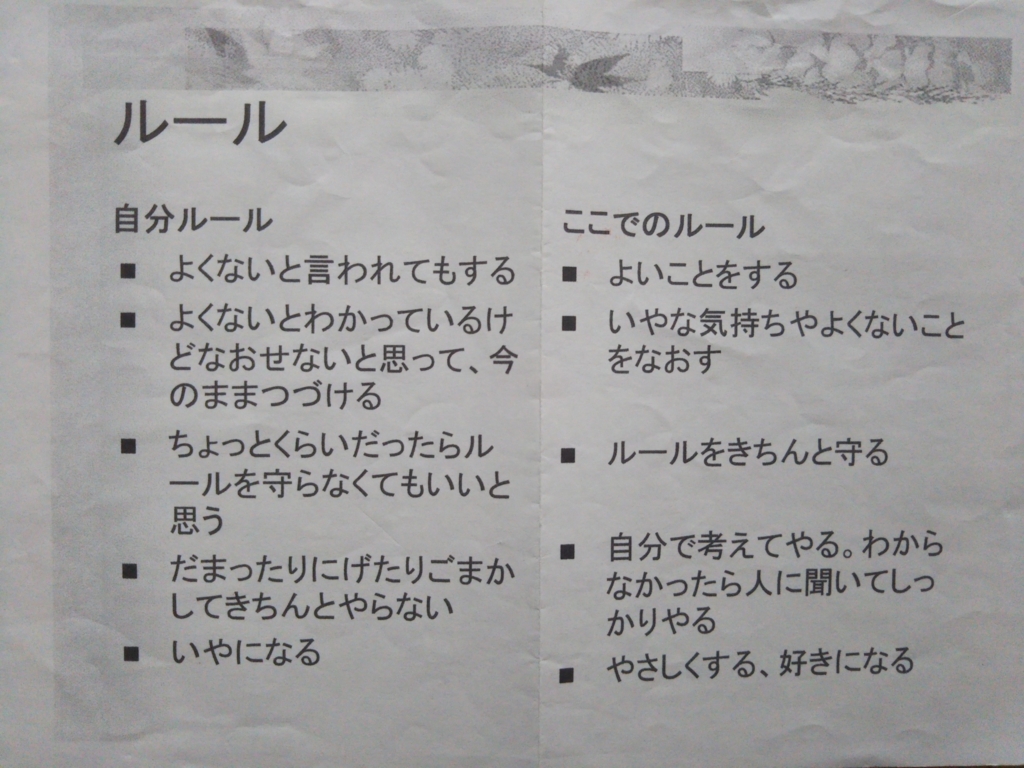 ルール
自分ルール
■ よくないと言われてもする
■ よくないとわかっているけ
どなおせないと思って、今
のままつづける
■ ちょっとくらいだったらル
ールを守らなくてもいいと
思う
■ だまったりにげたりごまか
してきちんとやらない
■ いやになる
ここでのルール
■ よいことをする
■ いやな気持ちやよくないこと
をなおす
■ ルールをきちんと守る
■ 自分で考えてやる。わから
なかったら人に聞いてしっ
かりやる
■ やさしくする、好きになる